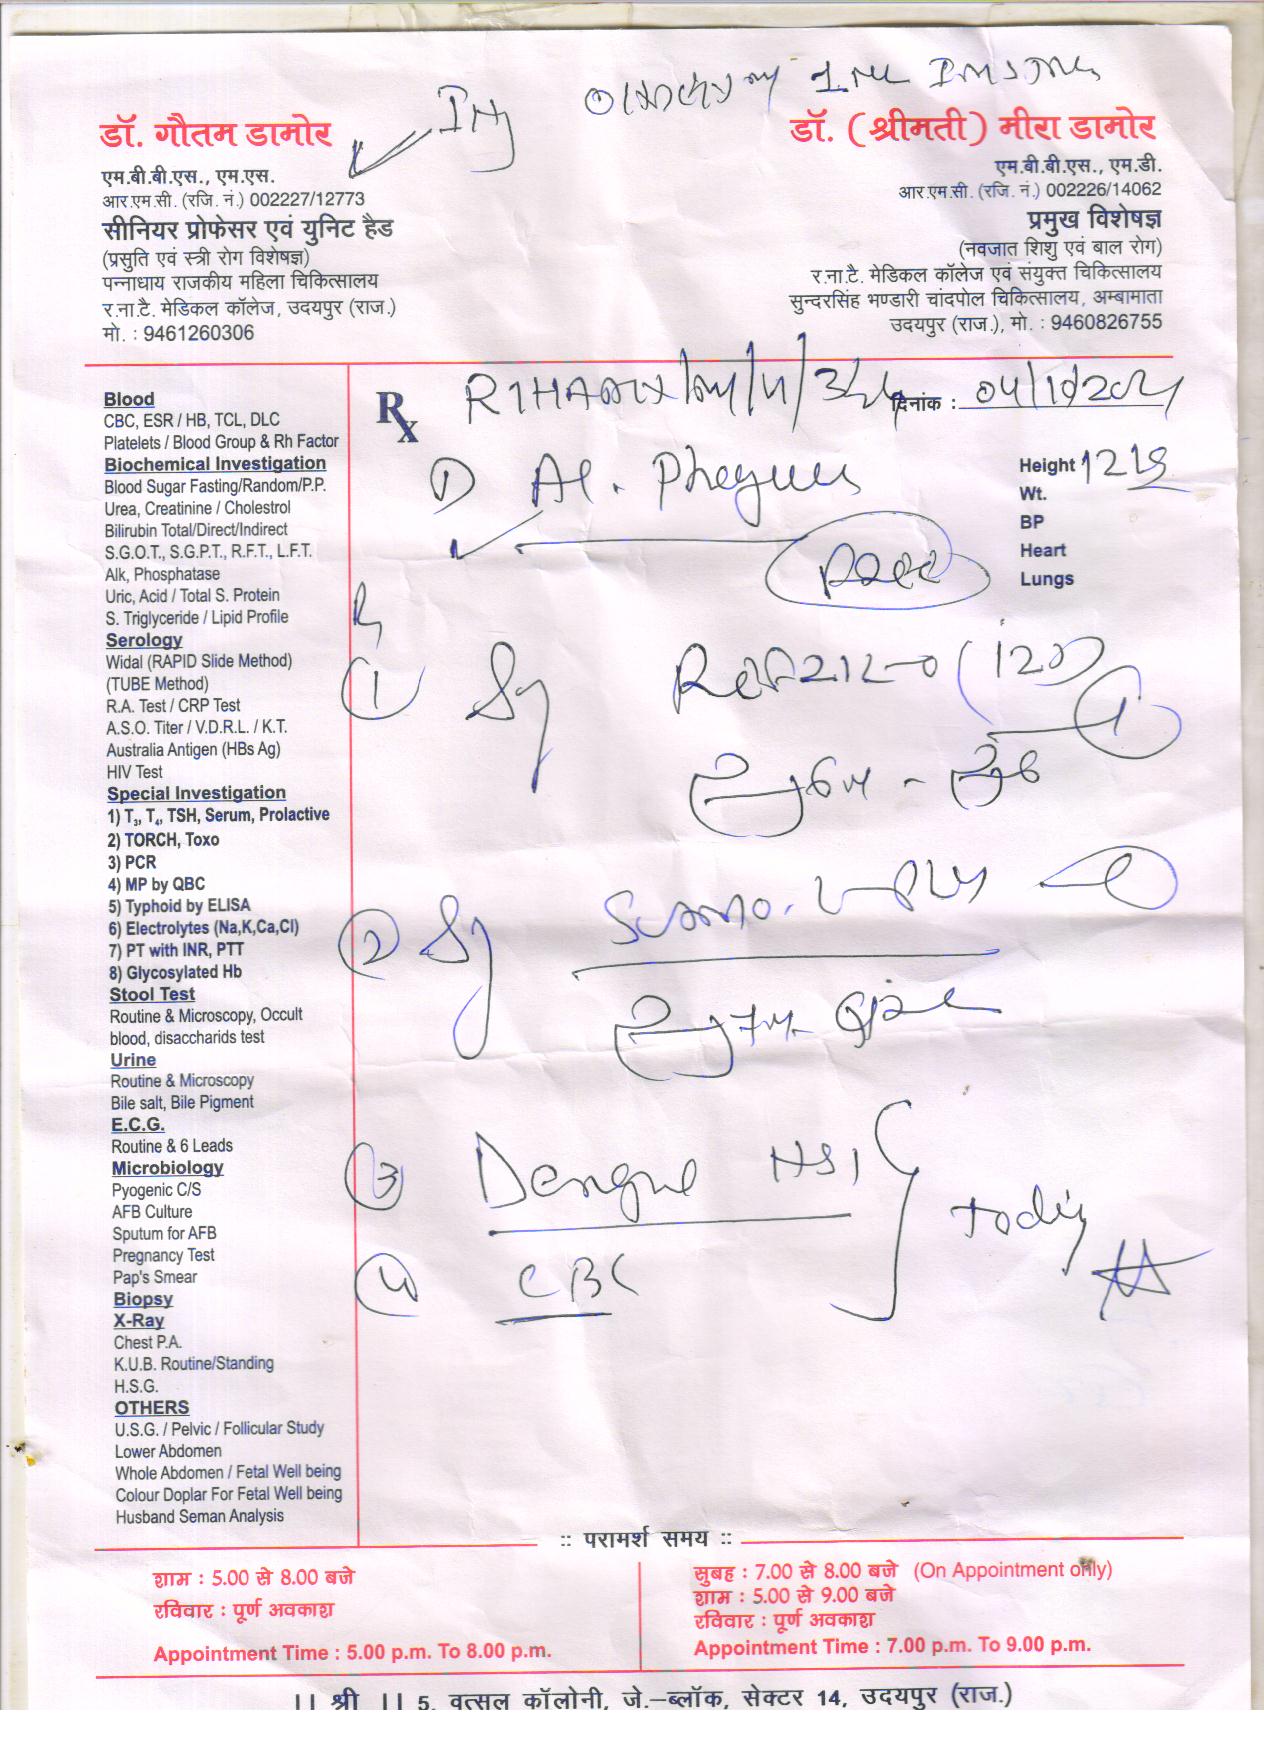 Inj
डॉ. गौतम डामोर
एम.बी.बी.एस., एम.एस.
आर.एम.सी. (रजि. नं.) 002227/12773
सीनियर प्रोफेसर एवं युनिट हैड
(प्रसुति एवं स्त्री रोग विशेषज्ञ)
पन्नाधाय राजकीय महिला चिकित्सालय
र.ना.टै. मेडिकल कॉलेज, उदयपुर (राज.)
मो. : 9461260306
डॉ. (श्रीमती) मीरा डामोर
एम.बी.बी.एस., एम.डी.
आर.एम.सी. (रजि. नं.) 002226/14062
प्रमुख विशेषज्ञ
(नवजात शिशु एवं बाल रोग)
र.ना.टै. मेडिकल कॉलेज एवं संयुक्त चिकित्सालय
सुन्दरसिंह भण्डारी चांदपोल चिकित्सालय, अम्बामाता
उदयपुर (राज.), मो. : 9460826755
Blood
CBC, ESR / HB, TCL, DLC
Platelets / Blood Group & Rh Factor
Biochemical Investigation
Blood Sugar Fasting/Random/P.P.
Urea, Creatinine / Cholestrol
Bilirubin Total/Direct/Indirect
S.G.O.T., S.G.P.T., R.F.T., L.F.T.
Alk, Phosphatase
Uric, Acid / Total S. Protein
S. Triglyceride / Lipid Profile
Serology
Widal (RAPID Slide Method)
(TUBE Method)
R.A. Test / CRP Test
A.S.O. Titer / V.D.R.L. / K.T.
Australia Antigen (HBs Ag)
HIV Test
Special Investigation
1) T3, T4, TSH, Serum, Prolactive
2) TORCH, Toxo
3) PCR
4) MP by QBC
5) Typhoid by ELISA
6) Electrolytes (Na,K,Ca,Cl)
7) PT with INR, PTT
8) Glycosylated Hb
Stool Test
Routine & Microscopy, Occult
blood, disaccharids test
Urine
Routine & Microscopy
Bile salt, Bile Pigment
E.C.G.
Routine & 6 Leads
Microbiology
Pyogenic C/S
AFB Culture
Sputum for AFB
Pregnancy Test
Pap's Smear
Biopsy
X-Ray
Chest P.A.
K.U.B. Routine/Standing
H.S.G.
OTHERS
U.S.G. / Pelvic / Follicular Study
Lower Abdomen
Whole Abdomen / Fetal Well being
Colour Doplar For Fetal Well being
Husband Seman Analysis
Rx दिनांक :
Height
Wt.
BP
Heart
Lungs
1 Sy (120)
2 Sy
3 Dengue NS1
4 CBC
Today
:: परामर्श समय ::
शाम : 5.00 से 8.00 बजे
रविवार : पूर्ण अवकाश
Appointment Time : 5.00 p.m. To 8.00 p.m.
सुबह : 7.00 से 8.00 बजे (On Appointment only)
शाम : 5.00 से 9.00 बजे
रविवार : पूर्ण अवकाश
Appointment Time : 7.00 p.m. To 9.00 p.m.
|| श्री || 5, वत्सल कॉलोनी, जे.–ब्लॉक, सेक्टर 14, उदयपुर (राज.)